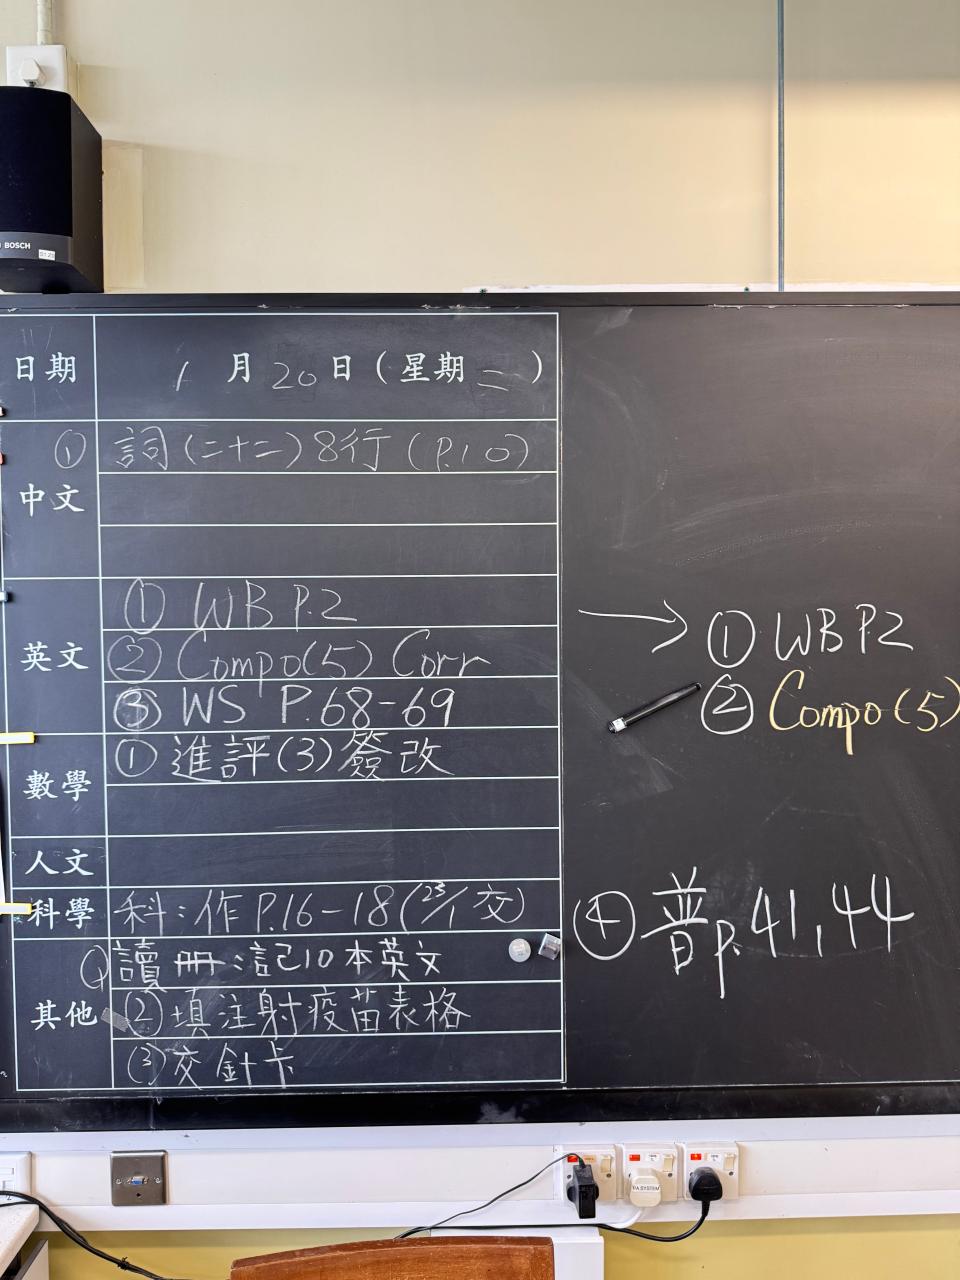 BOSCH
日期 1月20日(星期二)
中文 ① 詞(二十二)8行(P.10)
英文 ① WB P.2
② Compo(5) Corr
③ WS P.68-69
數學 ① 進評(3)簽改
人文
科學 科:作P.16-18(23/1交)
其他 讀冊:記10本英文
(2)填注射疫苗表格
(3)交針卡
① WB P.2
② Compo(5)
④ 普p.41,44
PA SYSTEM